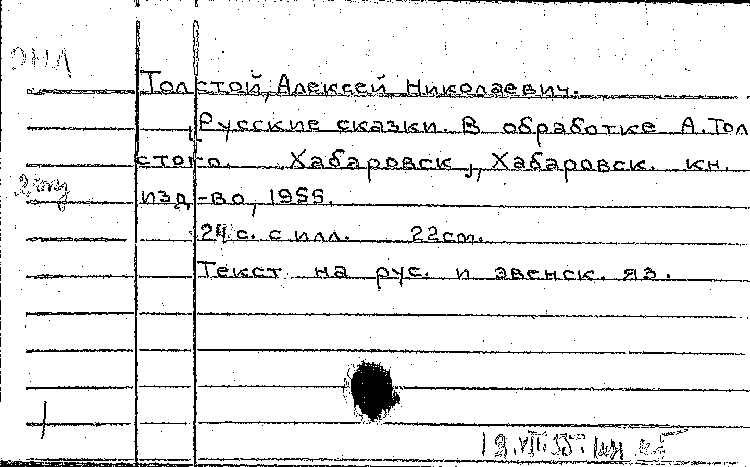 ЭНЛ
Толстой, Алексей Николаевич.
Русские сказки. В обработке А. Тол
стого. Хабаровск, Хабаровск. кн.
2 экз
изд-во, 1955.
24 с. с илл. 22 см.
Текст на рус. и эвенск. яз.